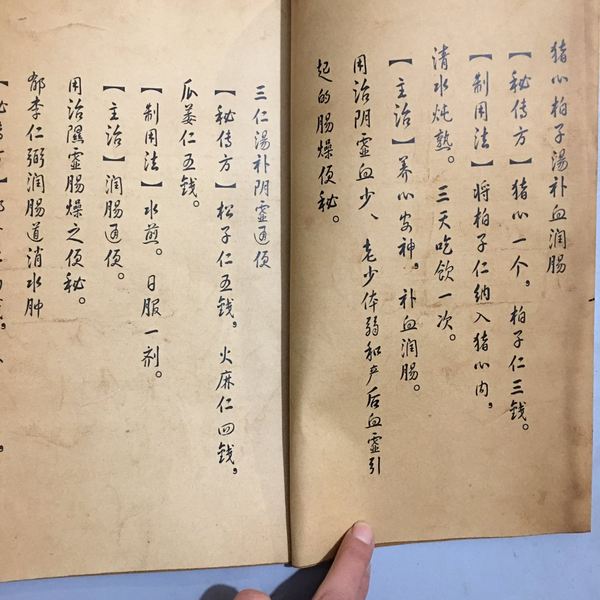 猪心柏子湯补血润肠
【秘传方】猪心一个，柏子仁三钱。
【制用法】将柏子仁纳入猪心内，
清水炖熟。三天吃饮一次。
【主治】养心安神，补血润肠。
用治阴虚血少、老少体弱和产后血虚引
起的肠燥便秘。
三仁湯补阴虚通便
【秘传方】松子仁五钱，火麻仁四钱，
瓜蒌仁五钱。
【制用法】水煎。日服一剂。
【主治】润肠通便。
用治隰虚肠燥之便秘。
郁李仁粥润肠道消水肿